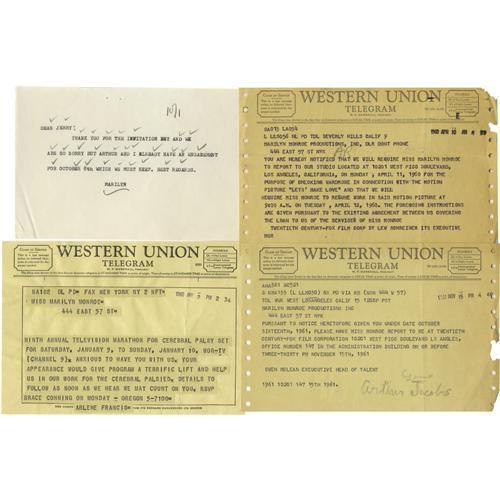 10/1
DEAR JERRY:
THANK YOU FOR THE INVITATION BUT AND WE
ARE SO SORRY BUT ARTHUR AND I ALREADY HAVE AN ENGAGEMENT
FOR OCTOBER 8th WHICH WE MUST KEEP. BEST REGARDS.
MARILYN
WESTERN UNION
TELEGRAM
OA013 LA054
L LLS056 NL PD TDL BEVERLY HILLS CALIF 9
MARILYN MONROE PRODUCTIONS, INC, DLR DONT PHONE
444 EAST 57 ST NYK
YOU ARE HEREBY NOTIFIED THAT WE WILL REQUIRE MISS MARILYN MONROE
TO REPORT TO OUR STUDIO LOCATED AT 10201 WEST PICO BOULEVARD,
LOS ANGELES, CALIFORNIA, ON MONDAY, APRIL 11, 1960 FOR THE
PURPOSE OF CHECKING WARDROBE IN CONNECTION WITH THE MOTION
PICTURE "LETS MAKE LOVE" AND THAT WE WILL
REQUIRE MISS MONROE TO RESUME WORK IN SAID MOTION PICTURE AT
9:00 A.M. ON TUESDAY, APRIL 12, 1960. THE FOREGOING INSTRUCTIONS
ARE GIVEN PURSUANT TO THE EXISTING AGREEMENT BETWEEN US COVERING
THE LOAN TO US OF THE SERVICES OF MARILYN MONROE
TWENTIETH CENTURY-FOX FILM CORP BY LEW SCHREIBER ITS EXECUTIVE
MGR
WESTERN UNION
TELEGRAM
NA102 DL PD FAX NEW YORK NY 2 NFT
MISS MARILYN MONROE
444 EAST 57 ST
NINTH ANNUAL TELEVISION MARATHON FOR CEREBRAL PALSY SET
FOR SATURDAY, JANUARY 9, TO SUNDAY, JANUARY 10, WOR-TV
(CHANNEL 9). ANXIOUS TO HAVE YOU WITH US. YOUR
APPEARANCE WOULD GIVE PROGRAM A TERRIFIC LIFT AND HELP
US IN OUR WORK FOR THE CEREBRAL PALSIED. DETAILS TO
FOLLOW AS SOON AS WE HEAR WE MAY COUNT ON YOU. RSVP
BRACE CONNING ON MONDAY - OREGON 5-7100
ARLENE FRANCIS
WESTERN UNION
TELEGRAM
TDL WUX WEST LOSANGELES CALIF 15 1208P PST
MARILYN MONROE PRODUCTIONS INC
444 EAST 57 ST NYK
PURSUANT TO NOTICE HERETOFORE GIVEN YOU UNDER DATE OCTOBER
SIXTEENTH, 1961, PLEASE HAVE MISS MONROE REPORT TO ME AT TWENTIETH
CENTURY-FOX FILM CORPORATION 10201 WEST PICO BOULEVARD LS ANGLES,
OFFICE NUMBER 147 IN THE ADMINISTRATION BUILDING ON OR BEFORE
THREE-THIRTY PM NOVEMBER 15TH, 1961
OWEN MCLEAN EXECUTIVE HEAD OF TALENT
1961 10201 147 15TH 1961.
Arthur Jacobs